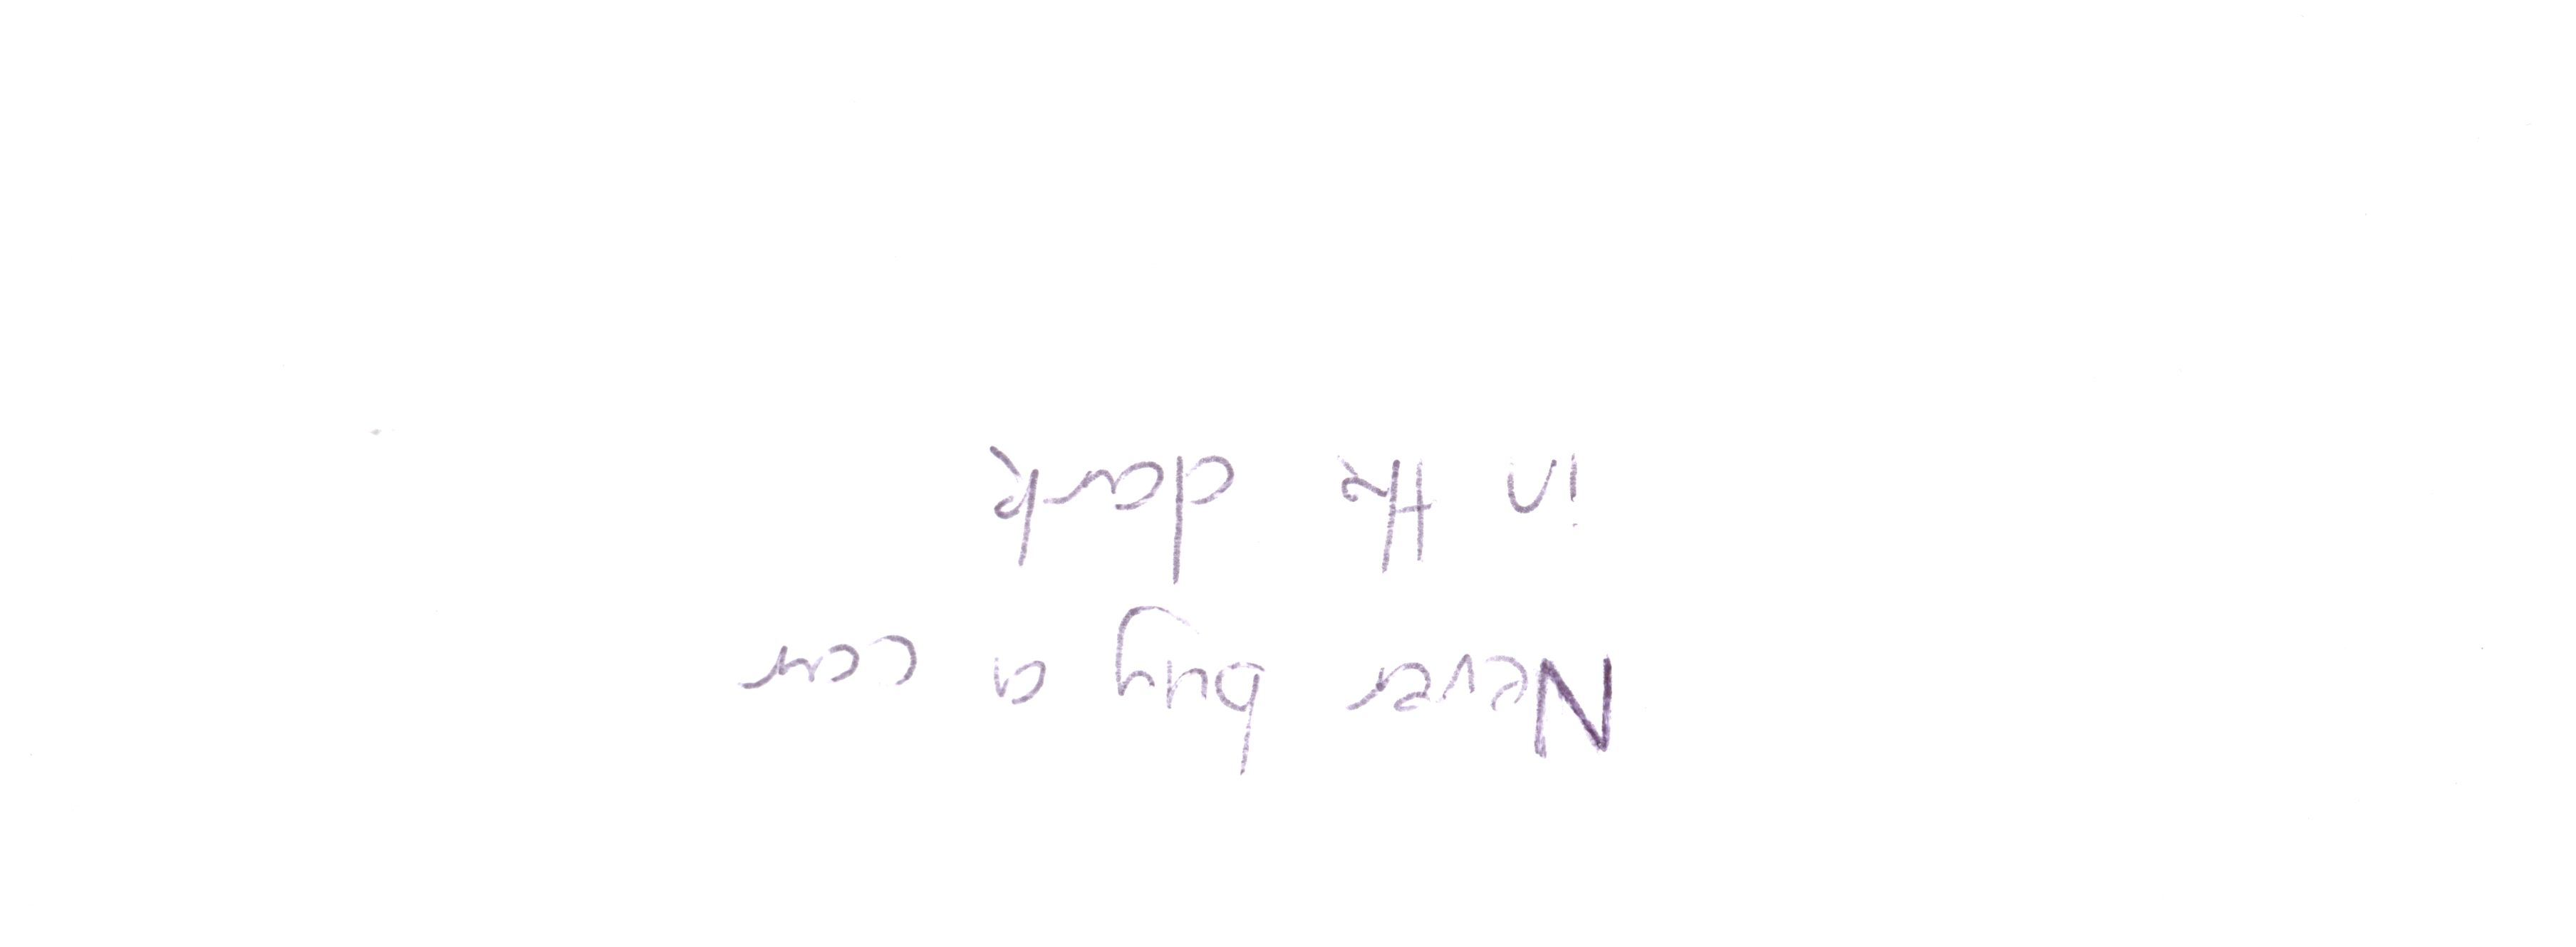 Never buy a car
in the dark